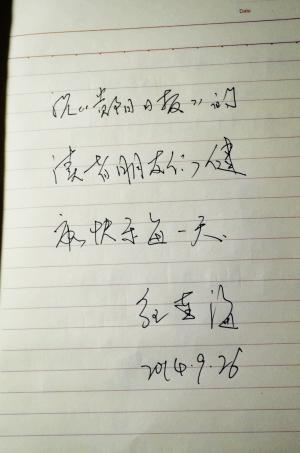 祝《日报》的
读者朋友们健
康快乐每一天.
纪连海
2014.9.26